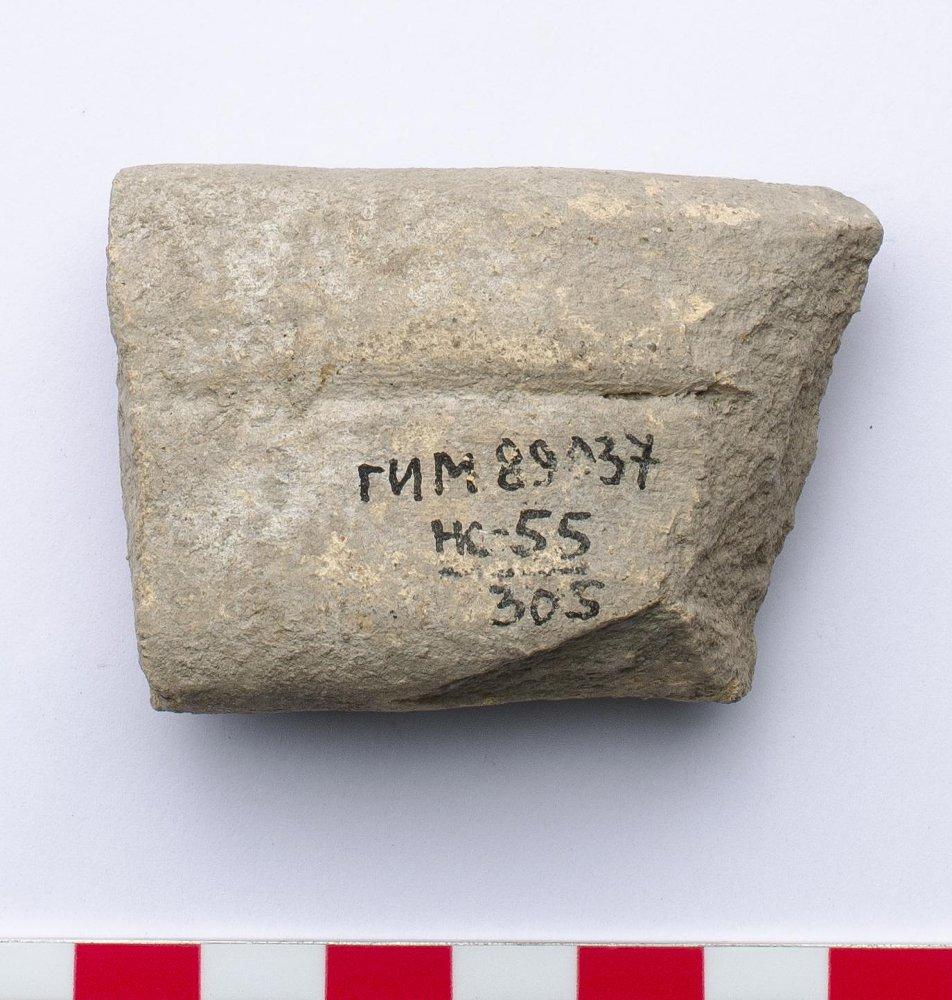 ГИМ 89037
НС-55
305